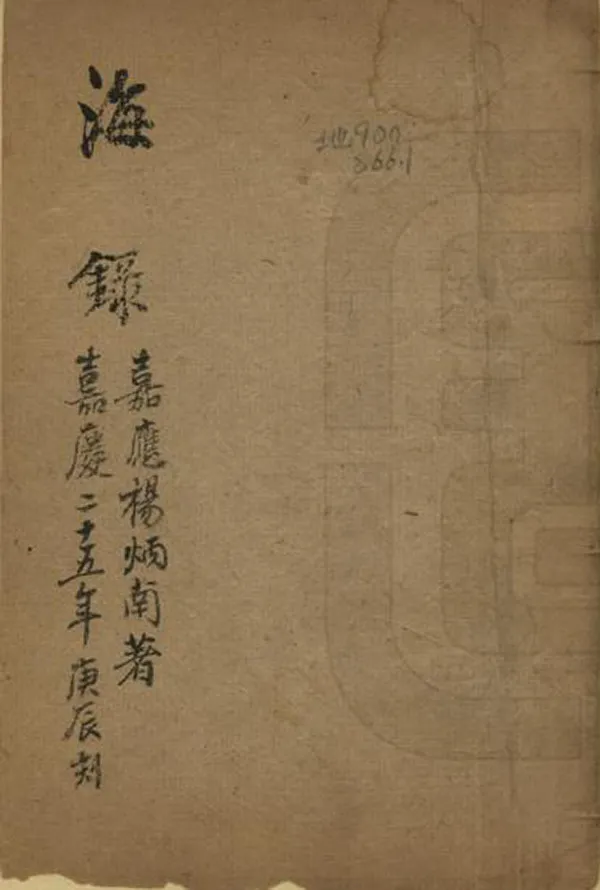 地907
866.1
海錄
嘉應楊炳南著
嘉慶二十五年庚辰刻